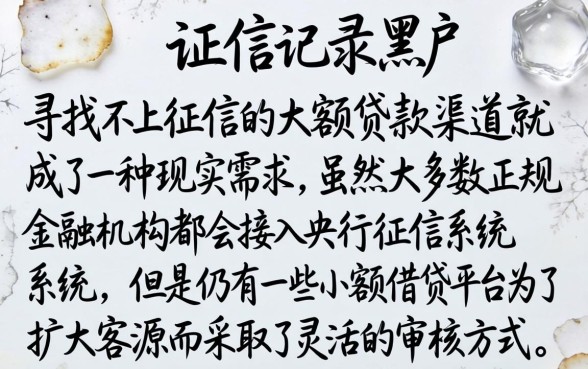 证信记录黑户
寻找不上征信的大额贷款渠道就
成了一种现实需求，虽然大多数正规
金融机构都会接入央行征信系统
系统，但是仍有一些小额借贷平台为了
扩大客源而采取了灵活的审核方式。